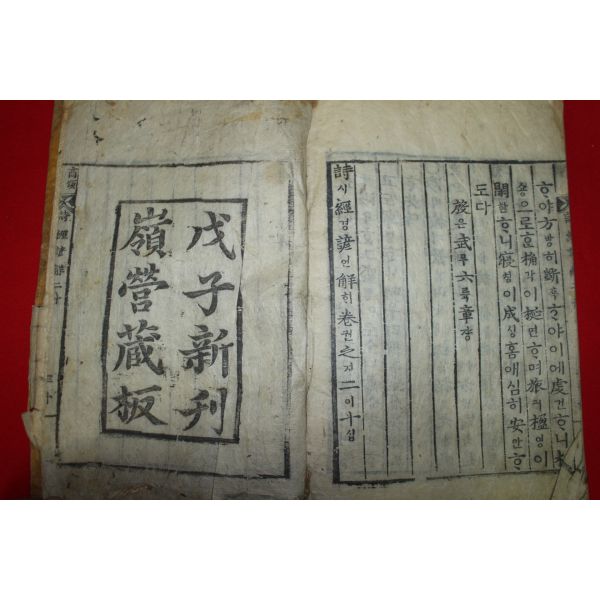 ᄒᆞ야方방히斲착ᄒᆞ야이에虔건ᄒᆞ니松
숑으로ᄒᆞᆫ桷각이梴연ᄒᆞ며旅려楹영이
閑한ᄒᆞ니寢침이成셩홈애심히安안ᄒᆞ
도다
殷은武무六륙章쟝
詩시經경諺언解ᄒᆡ卷권之지二이十십
戊子新刊
嶺營藏板
商頌
詩經諺解二十